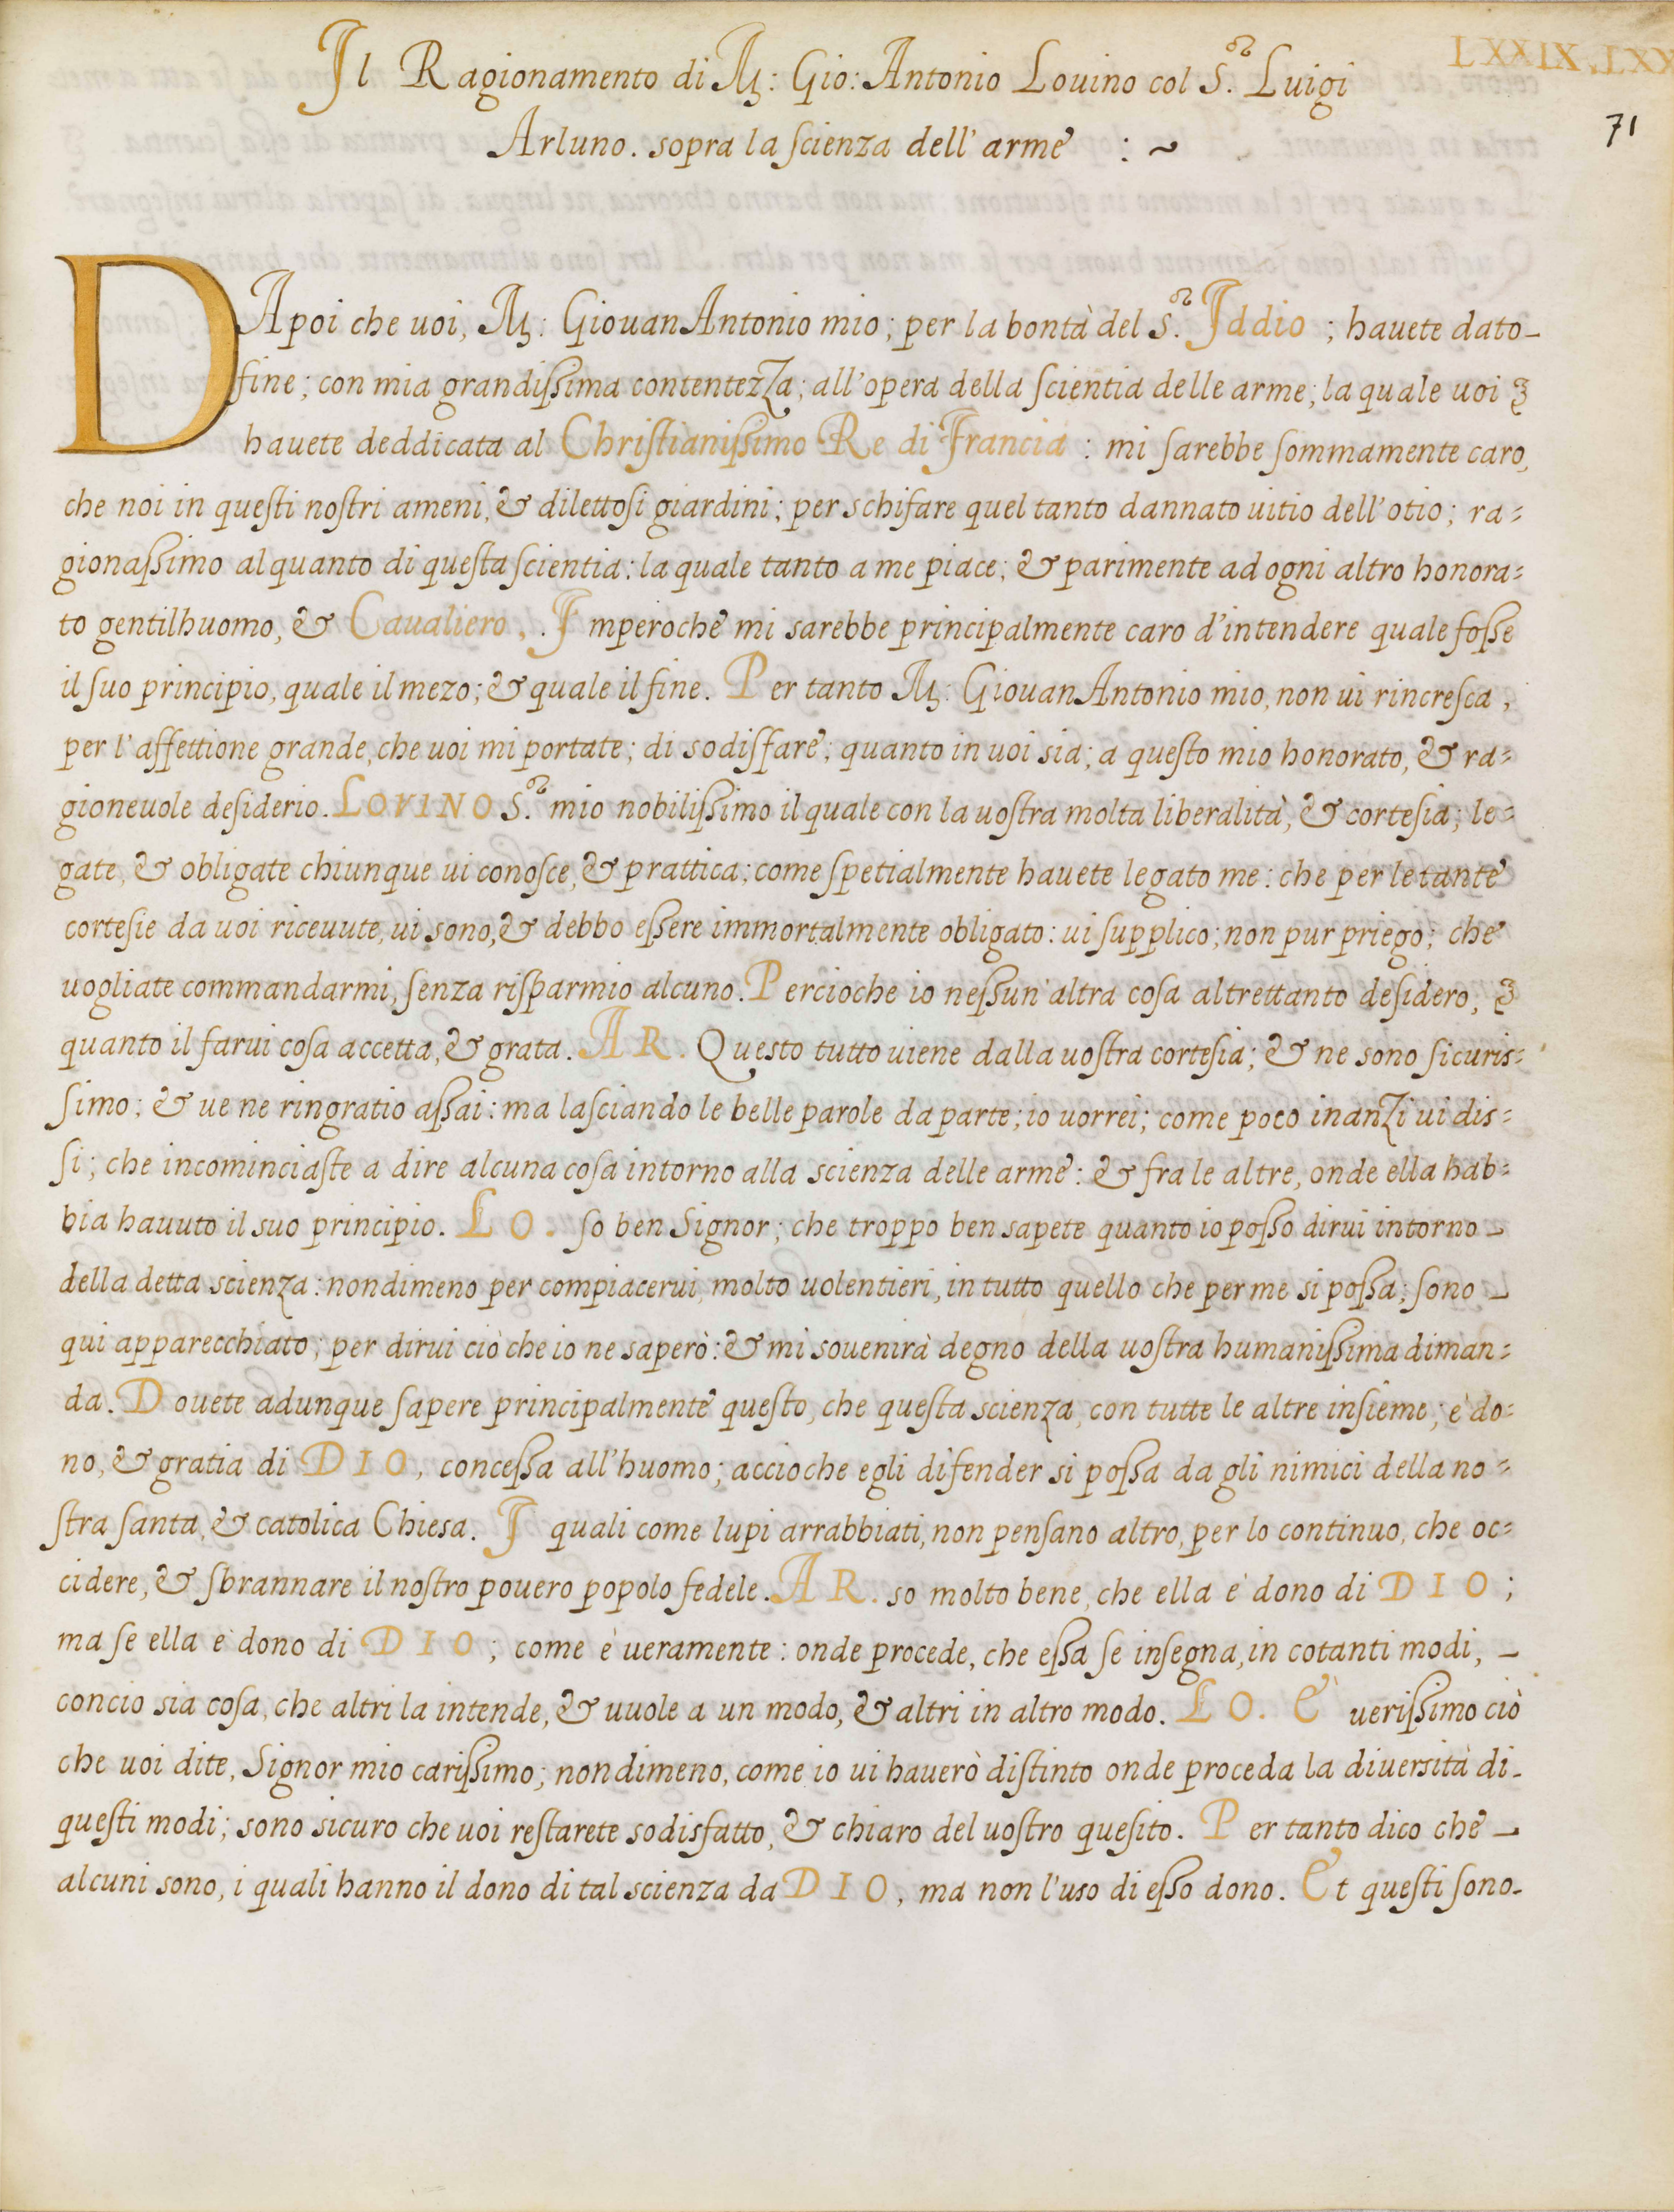 Il Ragionamento di M: Gio: Antonio Louino col S.or Luigi
LXXIX. LXX
Arluno. sopra la ſcienza dell' arme : ~
71
DApoi che uoi, M: Giouan Antonio mio; per la bontà del S.or Iddio ; hauete dato-
fine; con mia grandiſſima contentezza; all'opera della ſcientia delle arme; la quale uoi
hauete deddicata al Chriſtianiſſimo Re di Francia : mi ſarebbe ſommamente caro,
che noi in queſti noſtri ameni, & dilettoſi giardini; per schifare quel tanto dannato uitio dell'otio; ra=
gionaſſimo alquanto di queſta ſcientia: la quale tanto a me piace; & parimente ad ogni altro honora=
to gentilhuomo, & Caualiero. Imperoche mi sarebbe principalmente caro d'intendere quale foſſe
il ſuo principio, quale il mezo; & quale il fine. Per tanto M: Giouan Antonio mio, non ui rincreſca,
per l'affettione grande, che uoi mi portate; di sodiſfare; quanto in uoi sia; a queſto mio honorato, & ra=
gioneuole deſiderio. LOVINO S.or mio nobiliſſimo il quale con la uoſtra molta liberalità, & corteſia; le=
gate, & obligate chiunque ui conoſce, & prattica; come ſpetialmente hauete legato me: che per le tante
corteſie da uoi riceuute, ui sono, & debbo eſſere immortalmente obligato: ui ſupplico; non pur priego; che
uogliate commandarmi, ſenza riſparmio alcuno. Percioche io neſſun'altra coſa altrettanto deſidero,
quanto il farui coſa accetta, & grata. AR. Questo tutto uiene dalla uoſtra corteſia; & ne sono ſicuris=
ſimo; & ue ne ringratio aſſai: ma laſciando le belle parole da parte; io uorrei; come poco inanzi ui dis=
ſi; che incominciaſte a dire alcuna coſa intorno alla scienza delle arme: & fra le altre, onde ella hab=
bia hauuto il suo principio. LO. ſo ben Signor; che troppo ben sapete quanto io poſſo dirui intorno-
della detta scienza: nondimeno per compiacerui, molto uolentieri, in tutto quello che per me si poſſa; ſono -
qui apparecchiato; per dirui ciò che io ne saperò: & mi souenirà degno della uoſtra humaniſſima diman=
da. Douete adunque ſapere principalmente queſto, che queſta scienza, con tutte le altre inſieme; è do=
no, & gratia di DIO, conceſſa all'huomo; accioche egli difender si poſſa da gli nimici della no=
ſtra ſanta, & catolica Chiesa. I quali come lupi arrabbiati, non penſano altro, per lo continuo, che oc=
cidere, & ſbrannare il noſtro pouero popolo fedele. AR. so molto bene, che ella è dono di DIO;
ma ſe ella è dono di DIO; come è ueramente: onde procede, che eſſa ſe inſegna, in cotanti modi, -
concio sia coſa, che altri la intende, & uuole a un modo, & altri in altro modo. LO. È ueriſſimo ciò
che uoi dite, Signor mio cariſſimo; nondimeno, come io ui hauerò diſtinto onde proceda la diuersità di-
queſti modi; sono sicuro che uoi reſtarete sodisfatto, & chiaro del uoſtro queſito. Per tanto dico che -
alcuni sono, i quali hanno il dono di tal scienza da DIO, ma non l'uso di eſſo dono. Et queſti ſono-